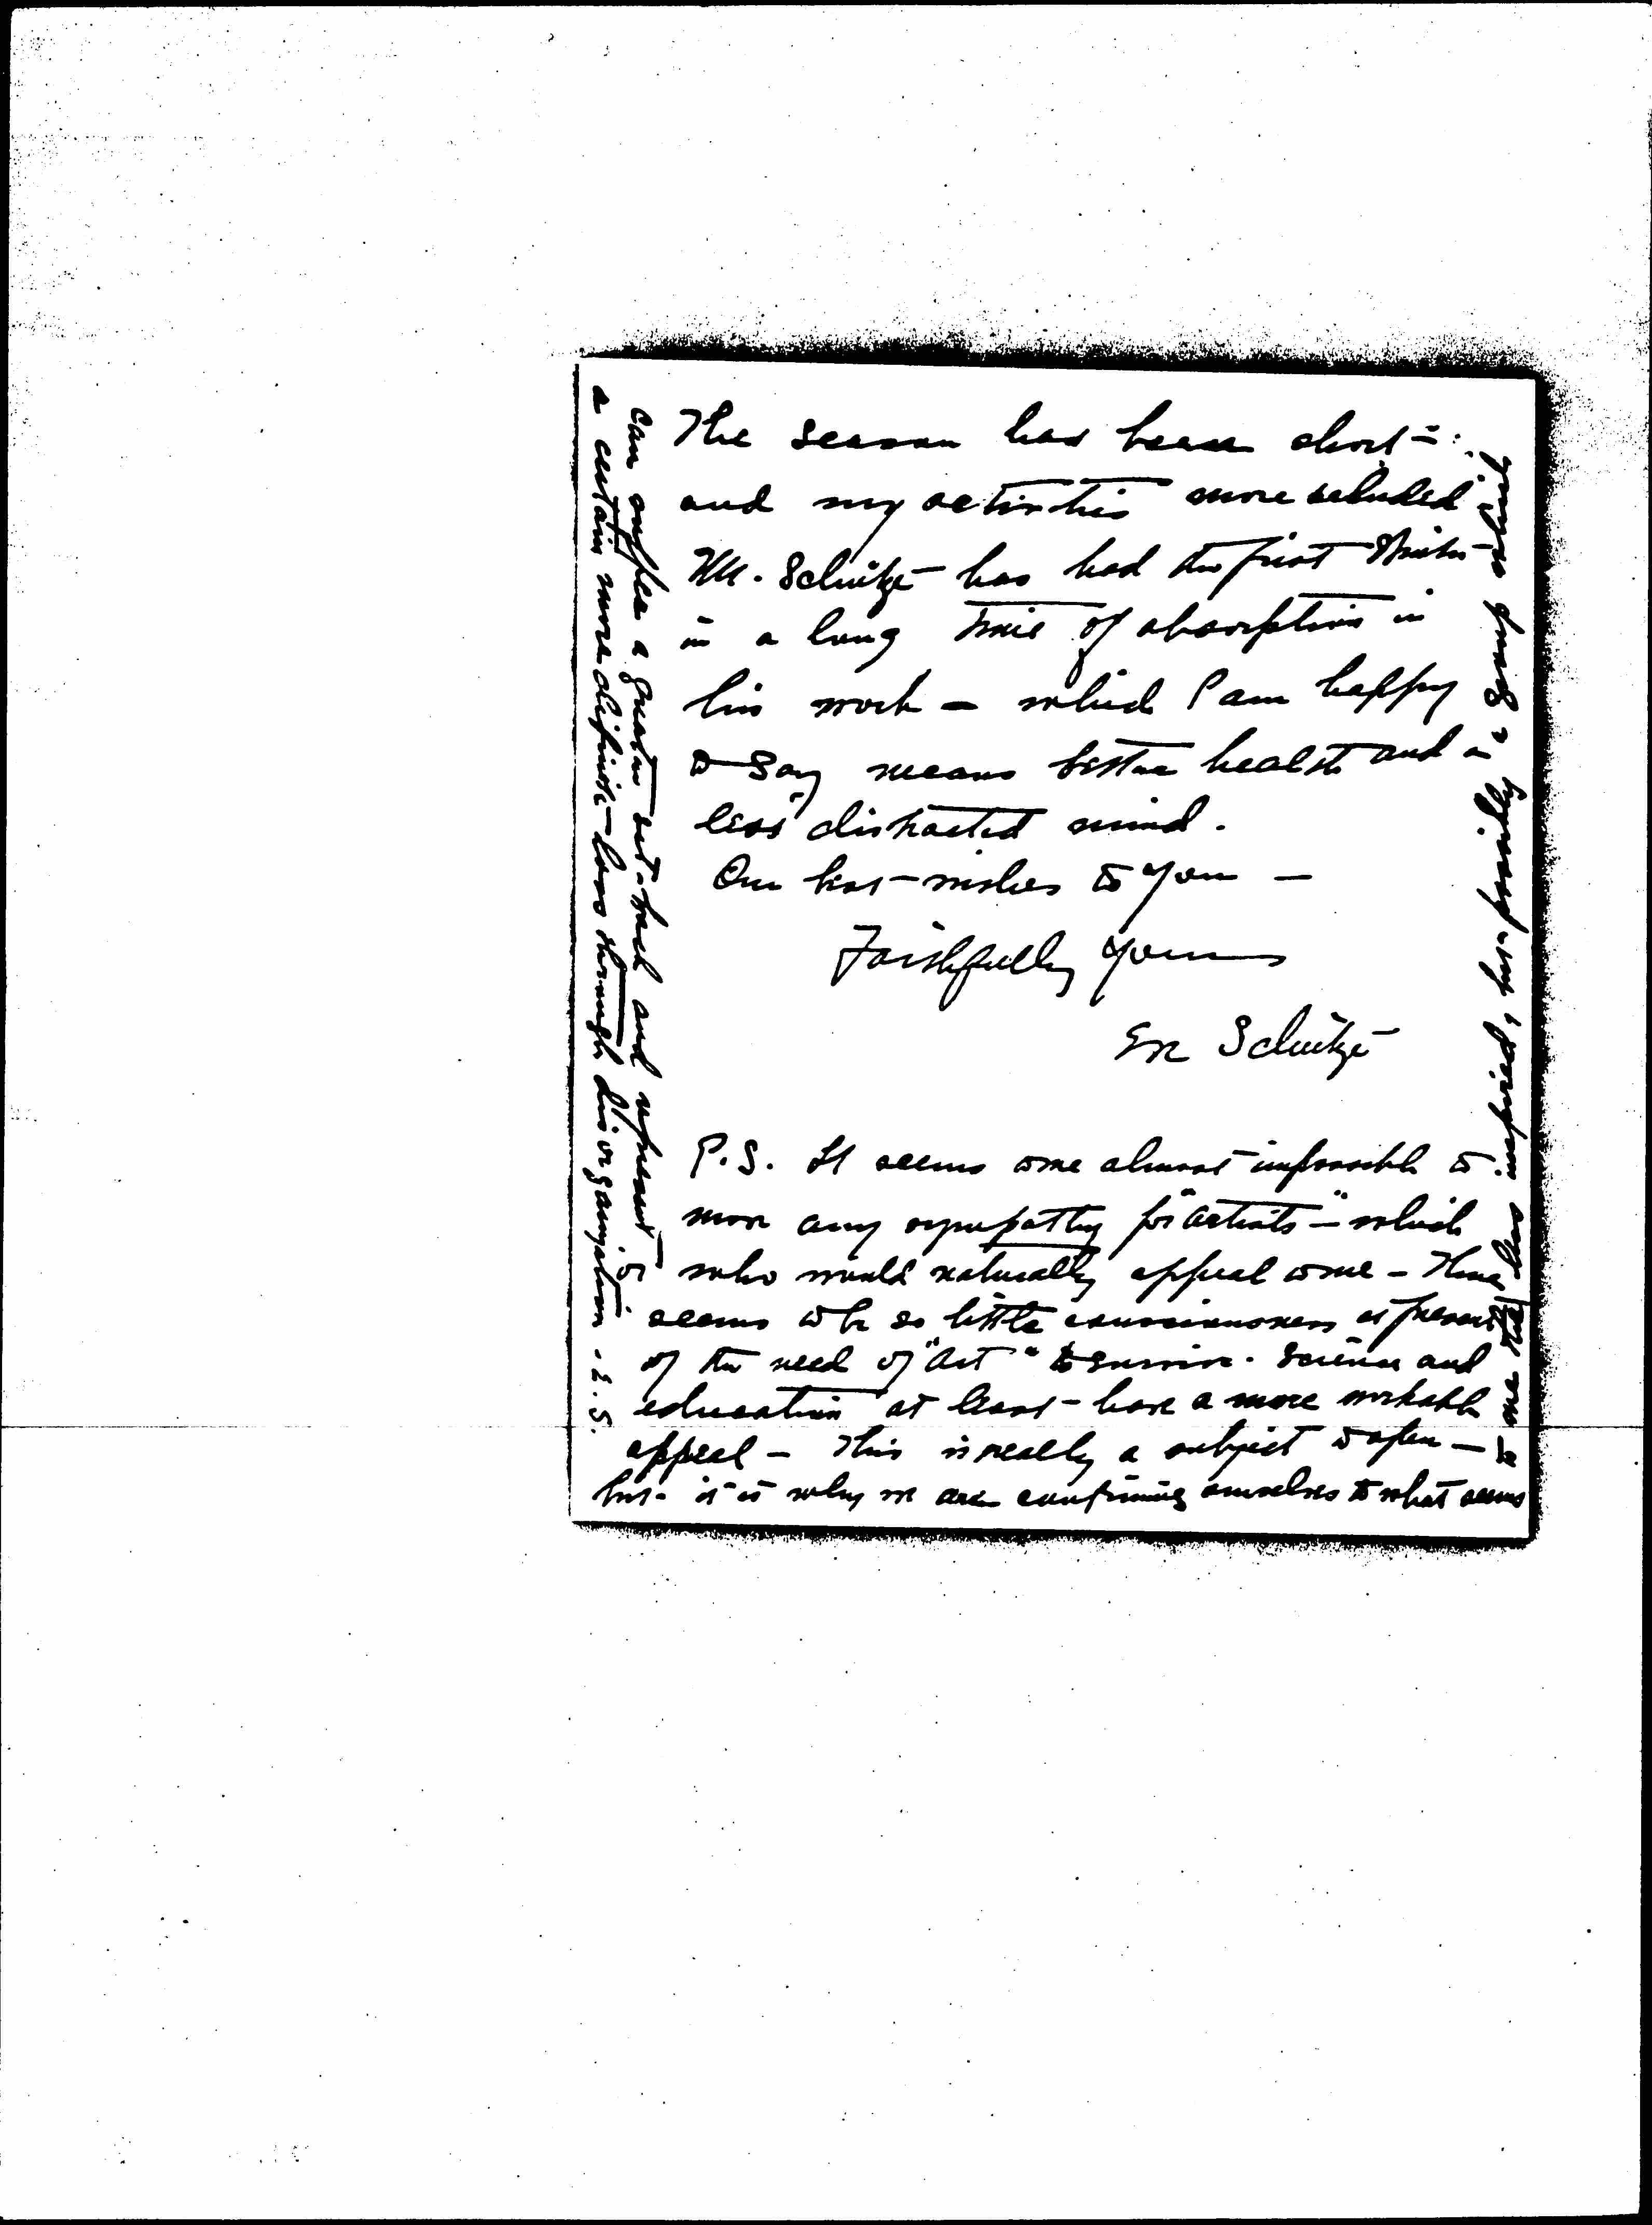 The season has been short –
and my activities more secluded
Mr. Schütze has had the first Winter
in a long time of absorption in
his work – which I am happy
to say means better health and a
less distracted mind.
Our best wishes to you –
Faithfully yours
Eva Schütze
P.S. It seems to me almost impossible to
move any sympathy for "artists" – which
who would naturally appeal to me – There
seems to be so little consciousness at present
of the need of "Art" to survive. Science and
education at least – have a more workable
appeal – This is really a subject to open –
but – it is why we are confining ourselves to what seems
to me the less inspired, but possibly a group which
can suffer a greater set-back and represent
a certain more definite loss through disorganization – E.S.